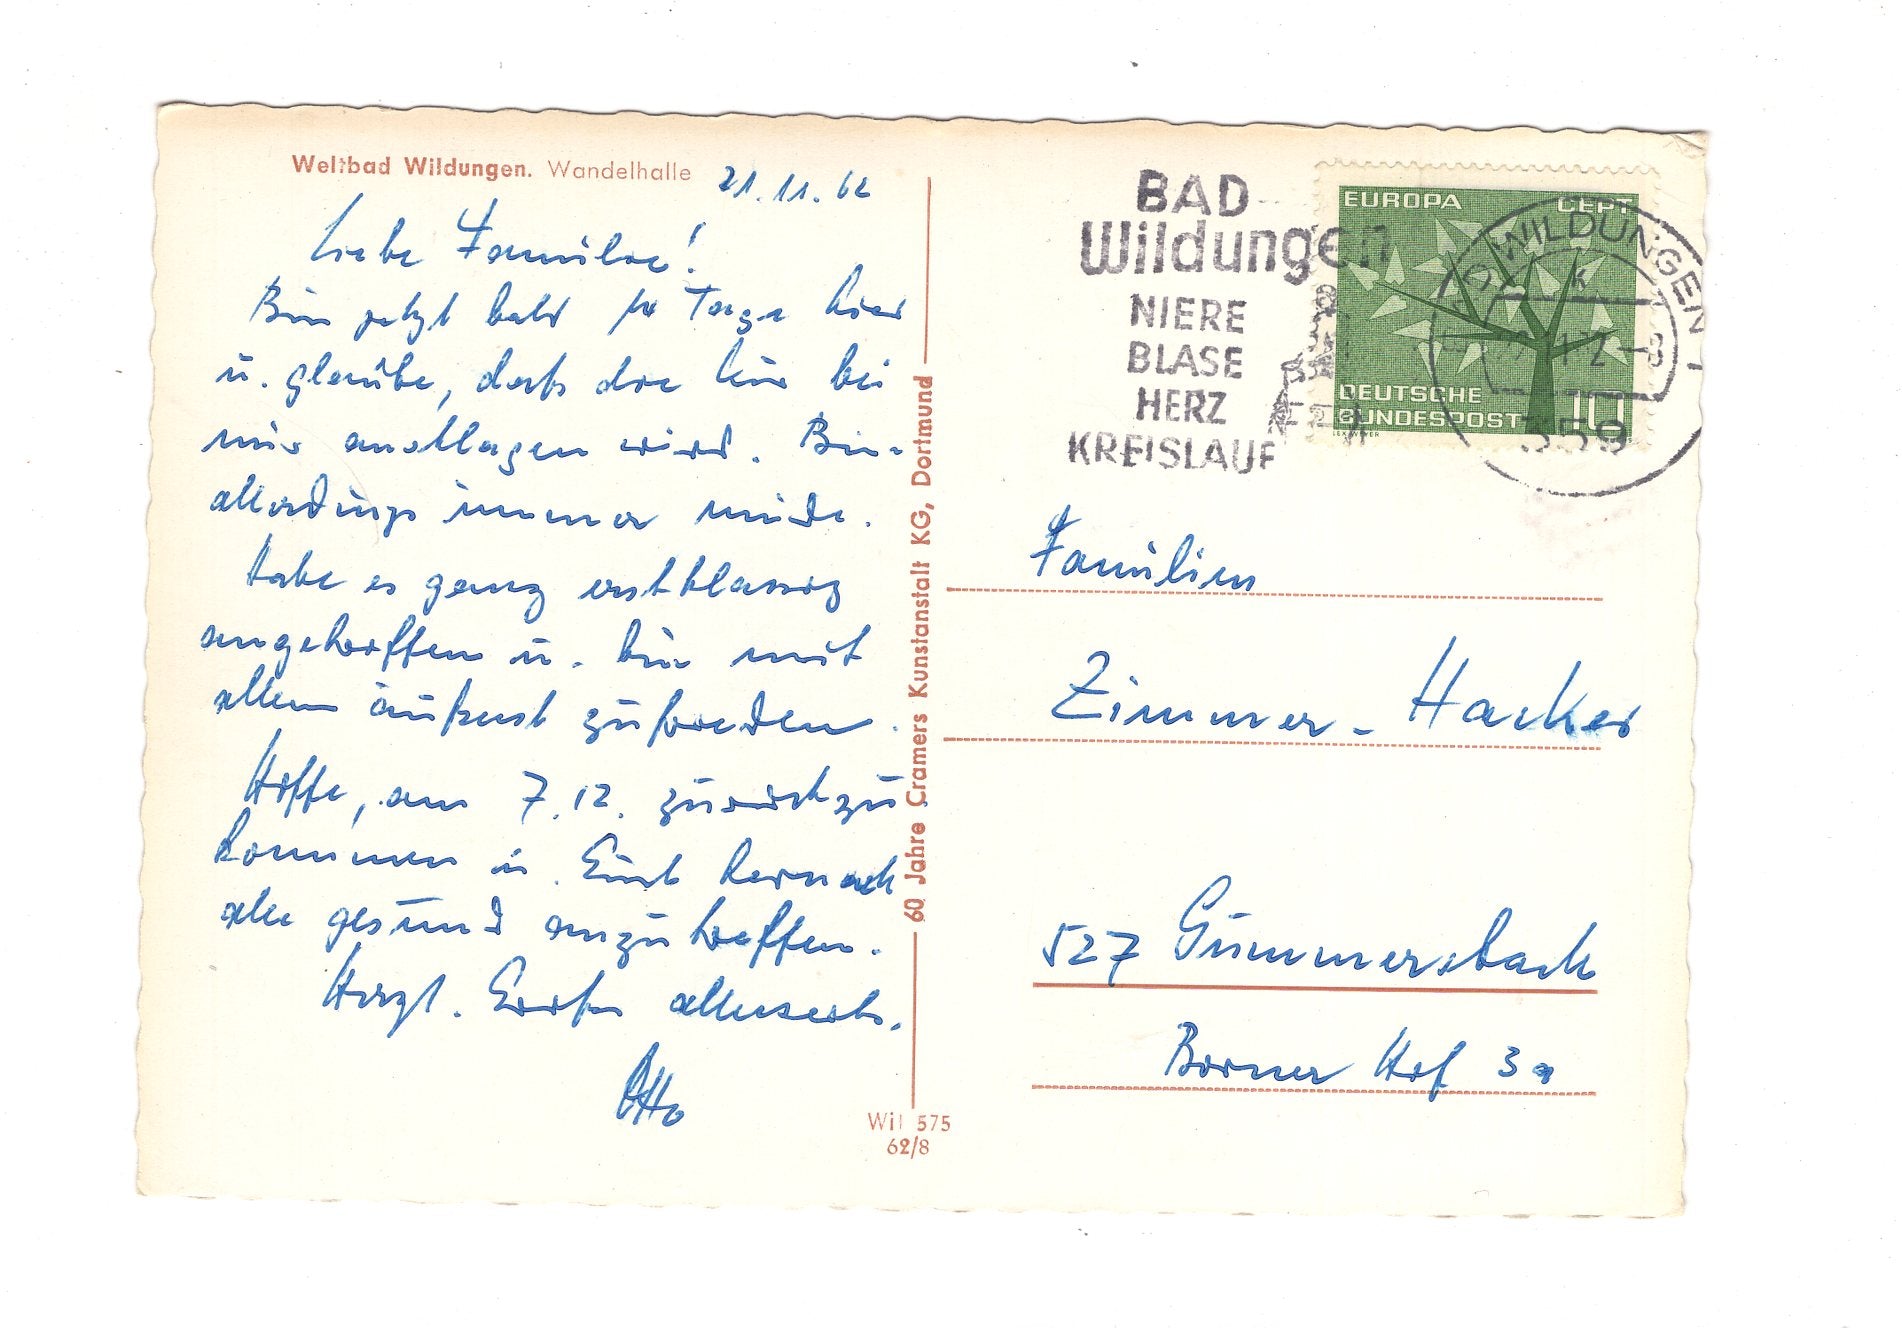 Weltbad Wildungen. Wandelhalle
21.11.62
Liebe Familie!
Bin jetzt bald 14 Tage hier
u. glaube, daß die Kur bei
mir anschlagen wird. Bin
allerdings immer müde.
Habe es ganz erstklassig
angetroffen u. bin mit
allem äußerst zufrieden.
Hoffe, am 7.12. zurückzu
kommen u. Euch dernach
alle gesund anzutreffen.
Herzl. Grüße allerseits.
Otto
60 Jahre Cramers Kunstanstalt KG, Dortmund
Wil 575
62/8
BAD
Wildungen
NIERE
BLASE
HERZ
KREISLAUF
EUROPA CEPT
DEUTSCHE
BUNDESPOST 10
BAD WILDUNGEN 1
359
Familien
Zimmer-Hacker
527 Gummersbach
Borner Hof 3a